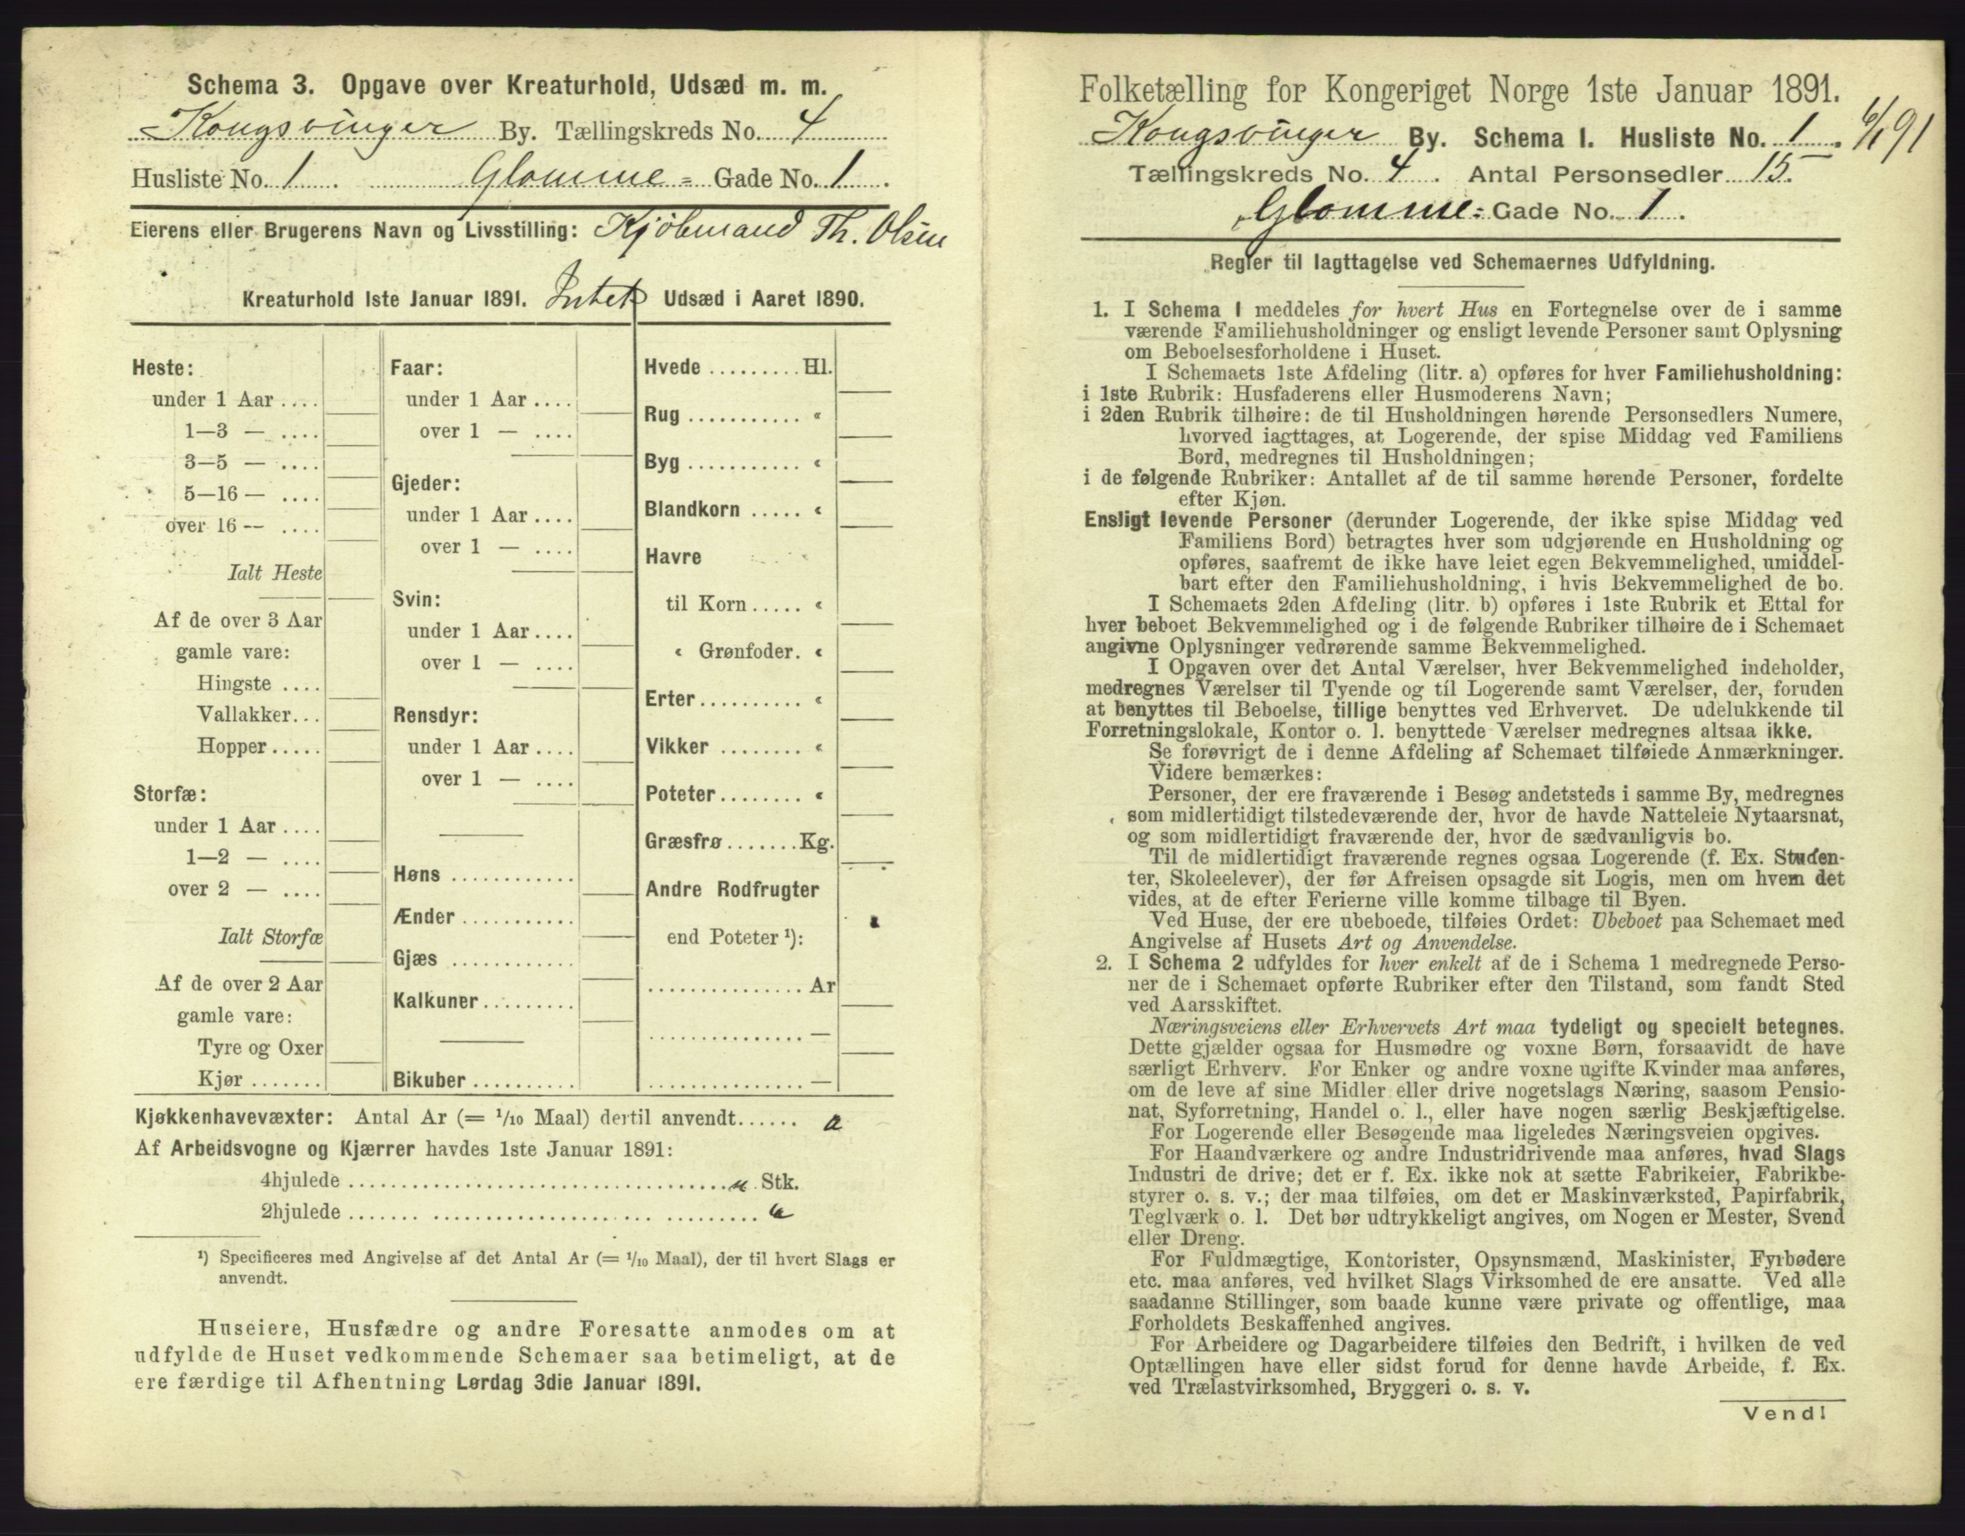 Schema 3. Opgave over Kreaturhold, Udsæd m. m.
Kongsvinger By. Tællingskreds No. 4
Husliste No. 1. Glomme- Gade No. 1.
Eierens eller Brugerens Navn og Livsstilling: Kjøbmand Th. Olsen
Kreaturhold 1ste Januar 1891. Intet Udsæd i Aaret 1890.
Heste:
under 1 Aar ....
1—3 — ....
3—5 — ....
5—16 — ....
over 16 — ....
Ialt Heste
Af de over 3 Aar
gamle vare:
Hingste ....
Vallakker...
Hopper.....
Storfæ:
under 1 Aar ....
1—2 — ....
over 2 — ....
Ialt Storfæ
Af de over 2 Aar
gamle vare:
Tyre og Oxer
Kjør .......
Faar:
under 1 Aar ....
over 1 — ....
Gjeder:
under 1 Aar ....
over 1 — ....
Svin:
under 1 Aar ....
over 1 — ....
Rensdyr:
under 1 Aar ....
over 1 — ....
Høns ............
Ænder ...........
Gjæs ............
Kalkuner.........
Bikuber ..........
Hvede ......... Hl.
Rug ........... «
Byg ........... «
Blandkorn ..... «
Havre
til Korn ..... «
« Grønfoder. «
Erter.......... «
Vikker ........ «
Poteter........ «
Græsfrø.......Kg.
Andre Rodfrugter
end Poteter ¹):
............... Ar
............... —
............... —
Kjøkkenhavevæxter: Antal Ar (= 1/10 Maal) dertil anvendt......
Af Arbeidsvogne og Kjærrer havdes 1ste Januar 1891:
4hjulede .................................... " Stk.
2hjulede ....... ...................... .........
¹) Specificeres med Angivelse af det Antal Ar (= 1/10 Maal), der til hvert Slags er
anvendt.
Huseiere, Husfædre og andre Foresatte anmodes om at
udfylde de Huset vedkommende Schemaer saa betimeligt, at de
ere færdige til Afhentning Lørdag 3die Januar 1891.
Folketælling for Kongeriget Norge 1ste Januar 1891.
Kongsvinger By. Schema I. Husliste No. 1. 6/1 91
Tællingskreds No. 4. Antal Personsedler 15.
Glomme- Gade No. 1.
Regler til Iagttagelse ved Schemaernes Udfyldning.
1. I Schema 1 meddeles for hvert Hus en Fortegnelse over de i samme
værende Familiehusholdninger og ensligt levende Personer samt Oplysning
om Beboelsesforholdene i Huset.
I Schemaets 1ste Afdeling (litr. a) opføres for hver Familiehusholdning:
i 1ste Rubrik: Husfaderens eller Husmoderens Navn;
i 2den Rubrik tilhøire: de til Husholdningen hørende Personsedlers Numere,
hvorved iagttages, at Logerende, der spise Middag ved Familiens
Bord, medregnes til Husholdningen;
i de følgende Rubriker: Antallet af de til samme hørende Personer, fordelte
efter Kjøn.
Ensligt levende Personer (derunder Logerende, der ikke spise Middag ved
Familiens Bord) betragtes hver som udgjørende en Husholdning og
opføres, saafremt de ikke have leiet egen Bekvemmelighed, umiddel-
bart efter den Familiehusholdning, i hvis Bekvemmelighed de bo.
I Schemaets 2den Afdeling (litr. b) opføres i 1ste Rubrik et Ettal for
hver beboet Bekvemmelighed og i de følgende Rubriker tilhøire de i Schemaet
angivne Oplysninger vedrørende samme Bekvemmelighed.
I Opgaven over det Antal Værelser, hver Bekvemmelighed indeholder,
medregnes Værelser til Tyende og til Logerende samt Værelser, der, foruden
at benyttes til Beboelse, tillige benyttes ved Erhvervet. De udelukkende til
Forretningslokale, Kontor o. l. benyttede Værelser medregnes altsaa ikke.
Se forøvrigt de i denne Afdeling af Schemaet tilføiede Anmærkninger.
Videre bemærkes:
Personer, der ere fraværende i Besøg andetsteds i samme By, medregnes
som midlertidigt tilstedeværende der, hvor de havde Natteleie Nytaarsnat,
og som midlertidigt fraværende der, hvor de sædvanligvis bo.
Til de midlertidigt fraværende regnes ogsaa Logerende (f. Ex. Studen-
ter, Skoleelever), der før Afreisen opsagde sit Logis, men om hvem det
vides, at de efter Ferierne ville komme tilbage til Byen.
Ved Huse, der ere ubeboede, tilføies Ordet: Ubeboet paa Schemaet med
Angivelse af Husets Art og Anvendelse.
2. I Schema 2 udfyldes for hver enkelt af de i Schema 1 medregnede Perso-
ner de i Schemaet opførte Rubriker efter den Tilstand, som fandt Sted
ved Aarsskiftet.
Næringsveiens eller Erhvervets Art maa tydeligt og specielt betegnes.
Dette gjælder ogsaa for Husmødre og voxne Børn, forsaavidt de have
særligt Erhverv. For Enker og andre voxne ugifte Kvinder maa anføres,
om de leve af sine Midler eller drive nogetslags Næring, saasom Pensio-
nat, Syforretning, Handel o. l., eller have nogen særlig Beskjæftigelse.
For Logerende eller Besøgende maa ligeledes Næringsveien opgives.
For Haandværkere og andre Industridrivende maa anføres, hvad Slags
Industri de drive; det er f. Ex. ikke nok at sætte Fabrikeier, Fabrikbe-
styrer o. s. v.; der maa tilføies, om det er Maskinværksted, Papirfabrik,
Teglværk o. l. Det bør udtrykkeligt angives, om Nogen er Mester, Svend
eller Dreng.
For Fuldmægtige, Kontorister, Opsynsmænd, Maskinister, Fyrbødere
etc. maa anføres, ved hvilket Slags Virksomhed de ere ansatte. Ved alle
saadanne Stillinger, som baade kunne være private og offentlige, maa
Forholdets Beskaffenhed angives.
For Arbeidere og Dagarbeidere tilføies den Bedrift, i hvilken de ved
Optællingen have eller sidst forud for denne havde Arbeide, f. Ex.
ved Trælastvirksomhed, Bryggeri o. s. v.
Vend!